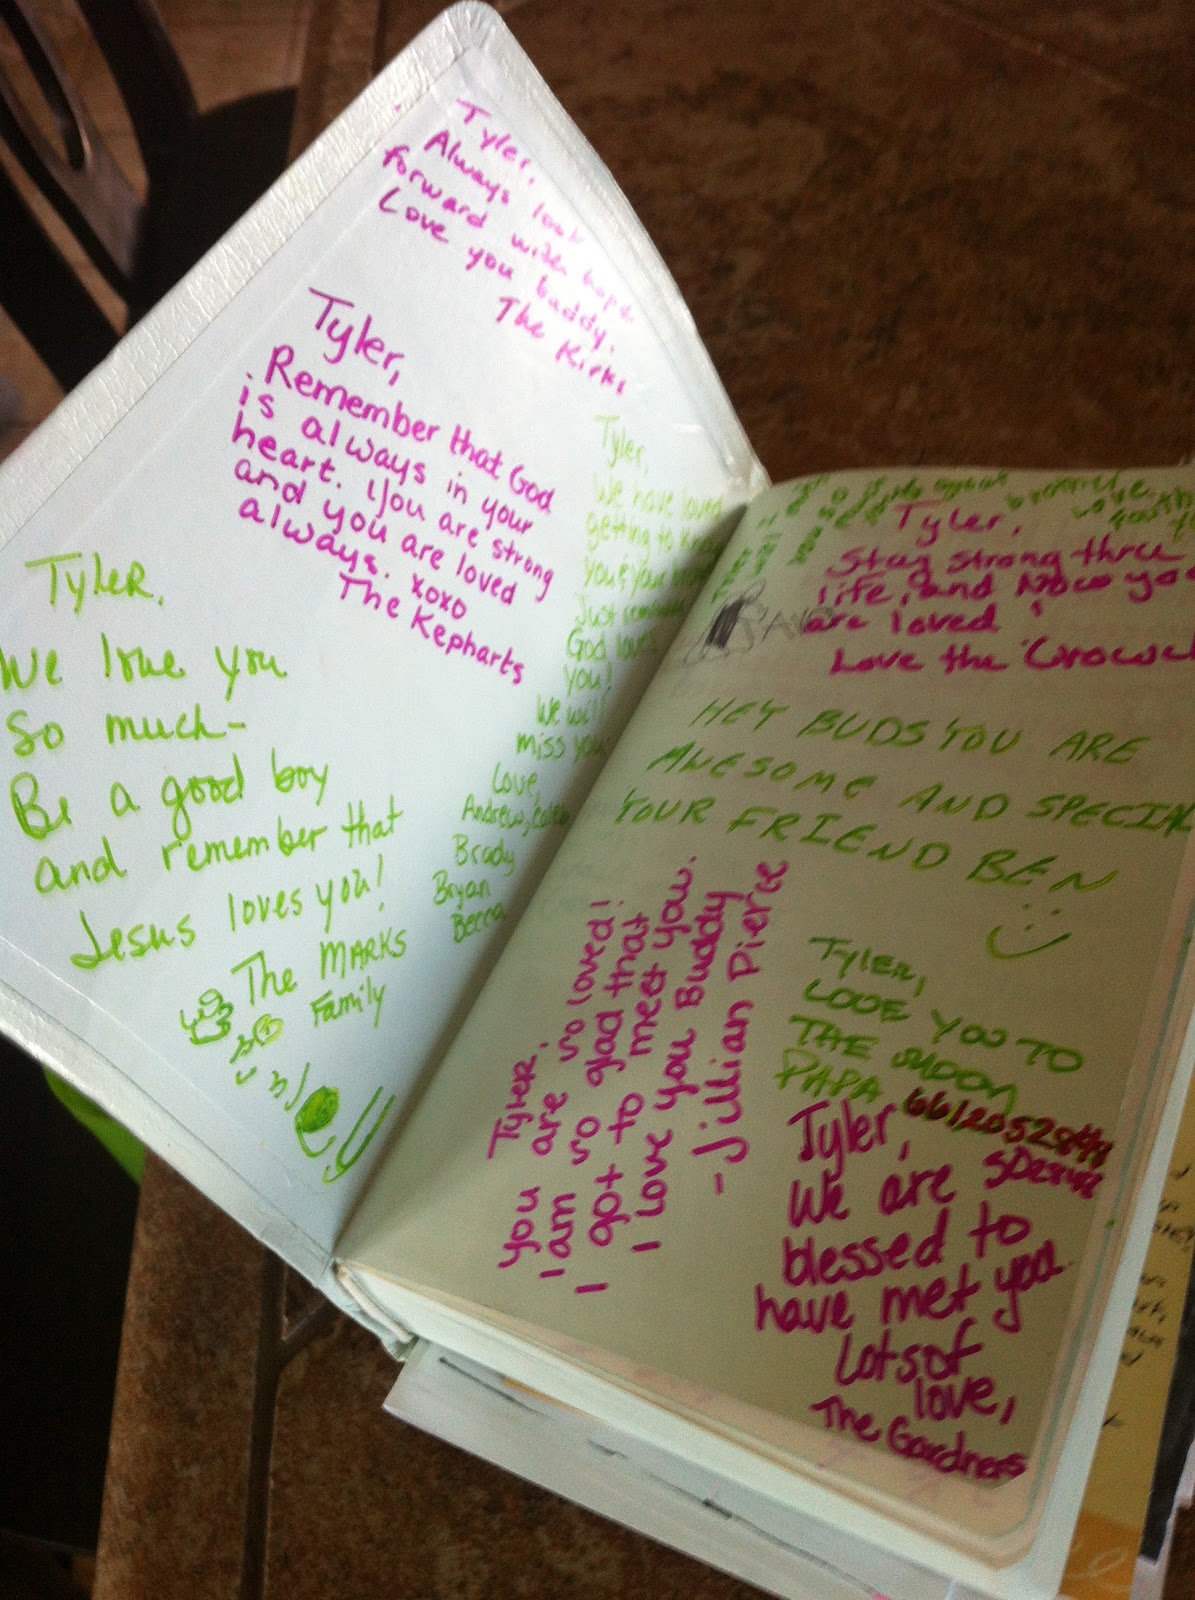 Tyler,
Always look
forward with hope
Love you buddy.
The Kirks
Tyler,
Remember that God
is always in your
heart. You are strong
and you are loved
always. xoxo
The Kepharts
Tyler,
We have loved
getting to know
you & your
Just remember
God loves
you!
We will
miss you
Love,
Andrew, Caleb
Brady
Bryan
Becca
Tyler,
We love you
So much-
Be a good boy
and remember that
Jesus loves you!
The MARKS
Family
Tyler,
Stay strong thru
life, and know you
are loved!
Love the
HEY BUDS YOU ARE
AWESOME AND SPECIAL
YOUR FRIEND BEN
Tyler,
you are so loved!
I am so glad that
I got to meet you.
I love you Buddy
- Jillian Pierce
TYLER,
LOVE YOU TO
THE MOON
PAPA
Tyler,
We are
blessed to
have met you
Lots of
love,
The Gardners